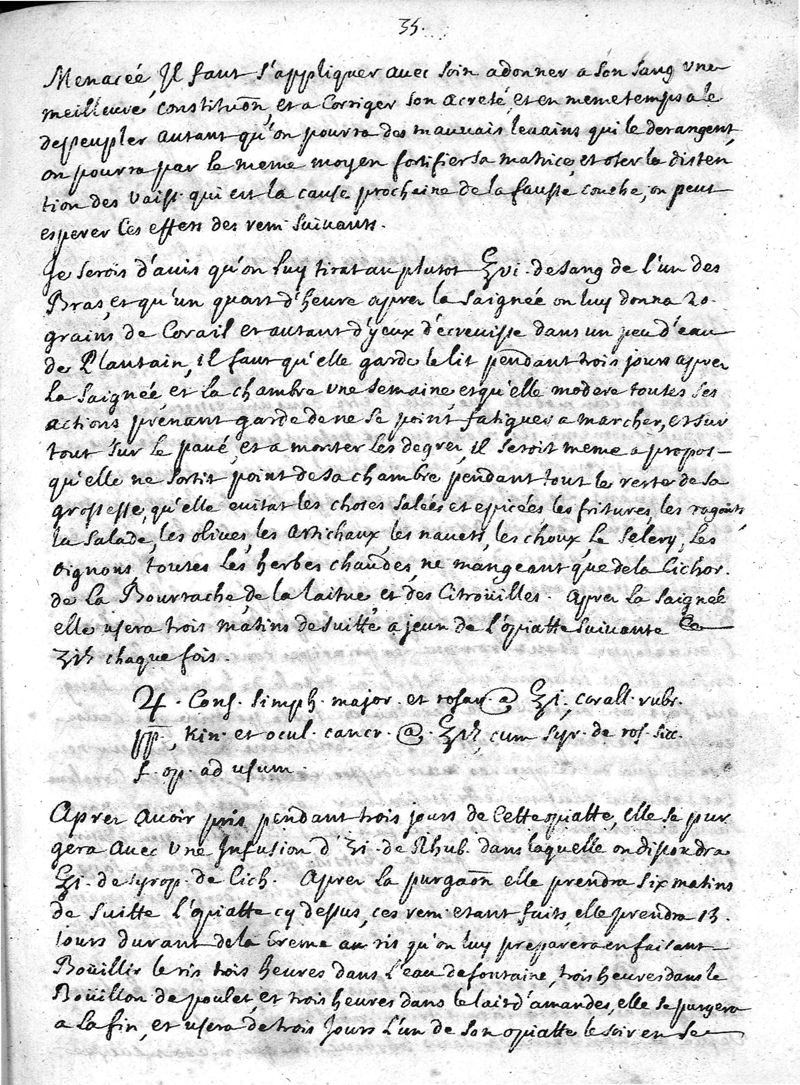 35.
Menacée, Il faut s'appliquer avec soin a donner a son sang une
meilleure constituõn, et a Corriger son acreté, et en meme temps a le
depeupler autant qu'on pourra des mauvais levains qui le derangent,
on pourra par le meme moyen fortifier sa matrice, et oter la disten
tion des vaiss. qui est la cause prochaine de la fausse couche, on peut
esperer ces effets des rem. suivants.
Je serois d'avis qu'on luy tirat au plutot ℥vi. de sang de l'un des
Bras, et qu'un quart d'heure apres la saignée on luy donna 20.
grains de Corail et autant d'yeux d'ecrevisse dans un peu d'eau
de Plantain, il faut qu'elle garde le lit pendant trois jours apres
la saignée, et la chambre une semaine et qu'elle modere toutes ses
actions prenant garde de ne se point fatiguer a marcher, et sur
tout sur le pavé, et a monter les degrez, il seroit meme a propos
qu'elle ne sortit point de sa chambre pendant tout le reste de sa
grossesse, qu'elle evitat les choses salées et epicées les fritures, les ragouts,
la salade, les olives, les artichaux les navets, les choux le selery, les
oignons, toutes les herbes chaudes, ne mangeant que de la Cichor.
de la Bourrache de la laitue et des Citrouilles. Apres la saignée
elle usera trois matins de suitte a jeun de l'opiatte suivante
chaque fois.
♃. Cons. simph. major. et rosar. @ ℥i, corall. rubr.
pp., Kin. et ocul. cancr. @. cum syr. de ros. sicc.
f. op. ad usum.
Apres avoir pris pendant trois jours de cette opiatte, elle se pur
gera avec une Infusion d'ʒi. de Rhub. dans laquelle on dissoudra
℥i. de syrop. de Cich. Apres la purgaõn elle prendra six matins
de suitte l'opiatte cy dessus, ces rem. etant faits, elle prendra 15.
Jours durant de la Creme au ris qu'on luy preparera en faisant
Boüillir le ris trois heures dans l'eau de fontaine, trois heures dans le
Boüillon de poulet, et trois heures dans le lait d'amandes, elle se purgera
a la fin, et usera de trois Jours l'un de son opiatte le soir en se